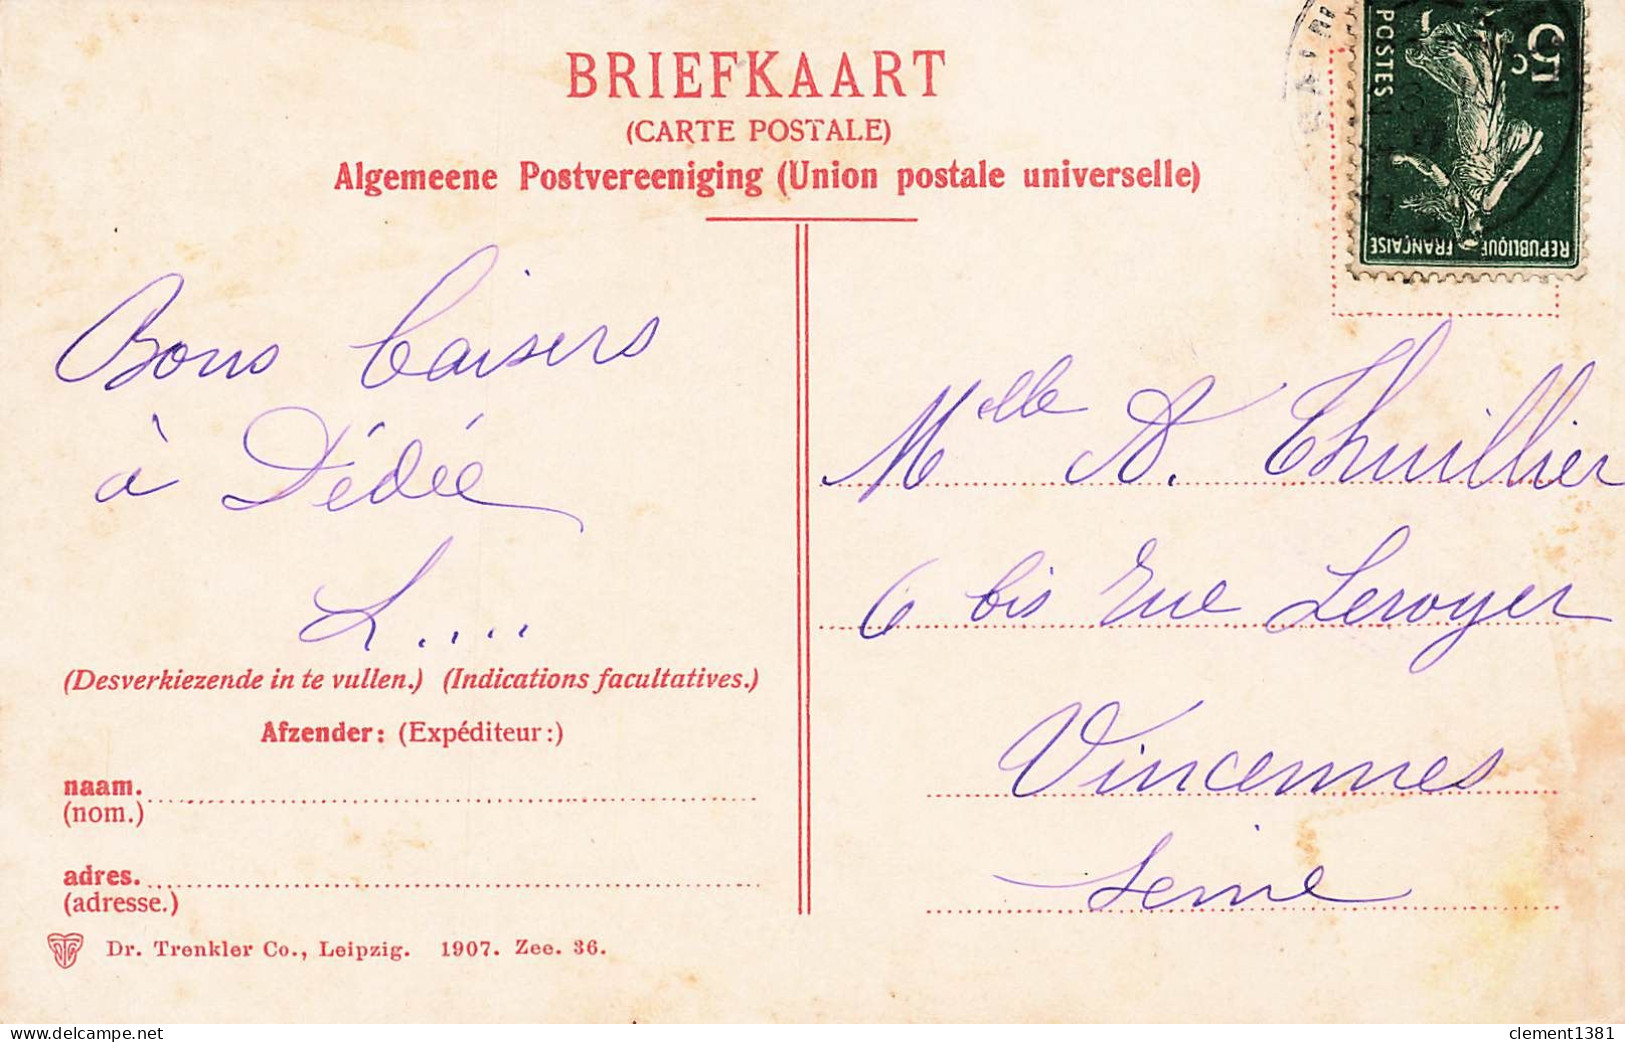 BRIEFKAART
(CARTE POSTALE)
Algemeene Postvereeniging (Union postale universelle)
5c
POSTES
REPUBLIQUE FRANÇAISE
Bons baisers
à Dédée
L....
(Desverkiezende in te vullen.) (Indications facultatives.)
Afzender: (Expéditeur:)
naam.
(nom.)
adres.
(adresse.)
Dr. Trenkler Co., Leipzig. 1907. Zee. 36.
Melle A. Thuillier
6 bis rue Leroyer
Vincennes
Seine
clement1381